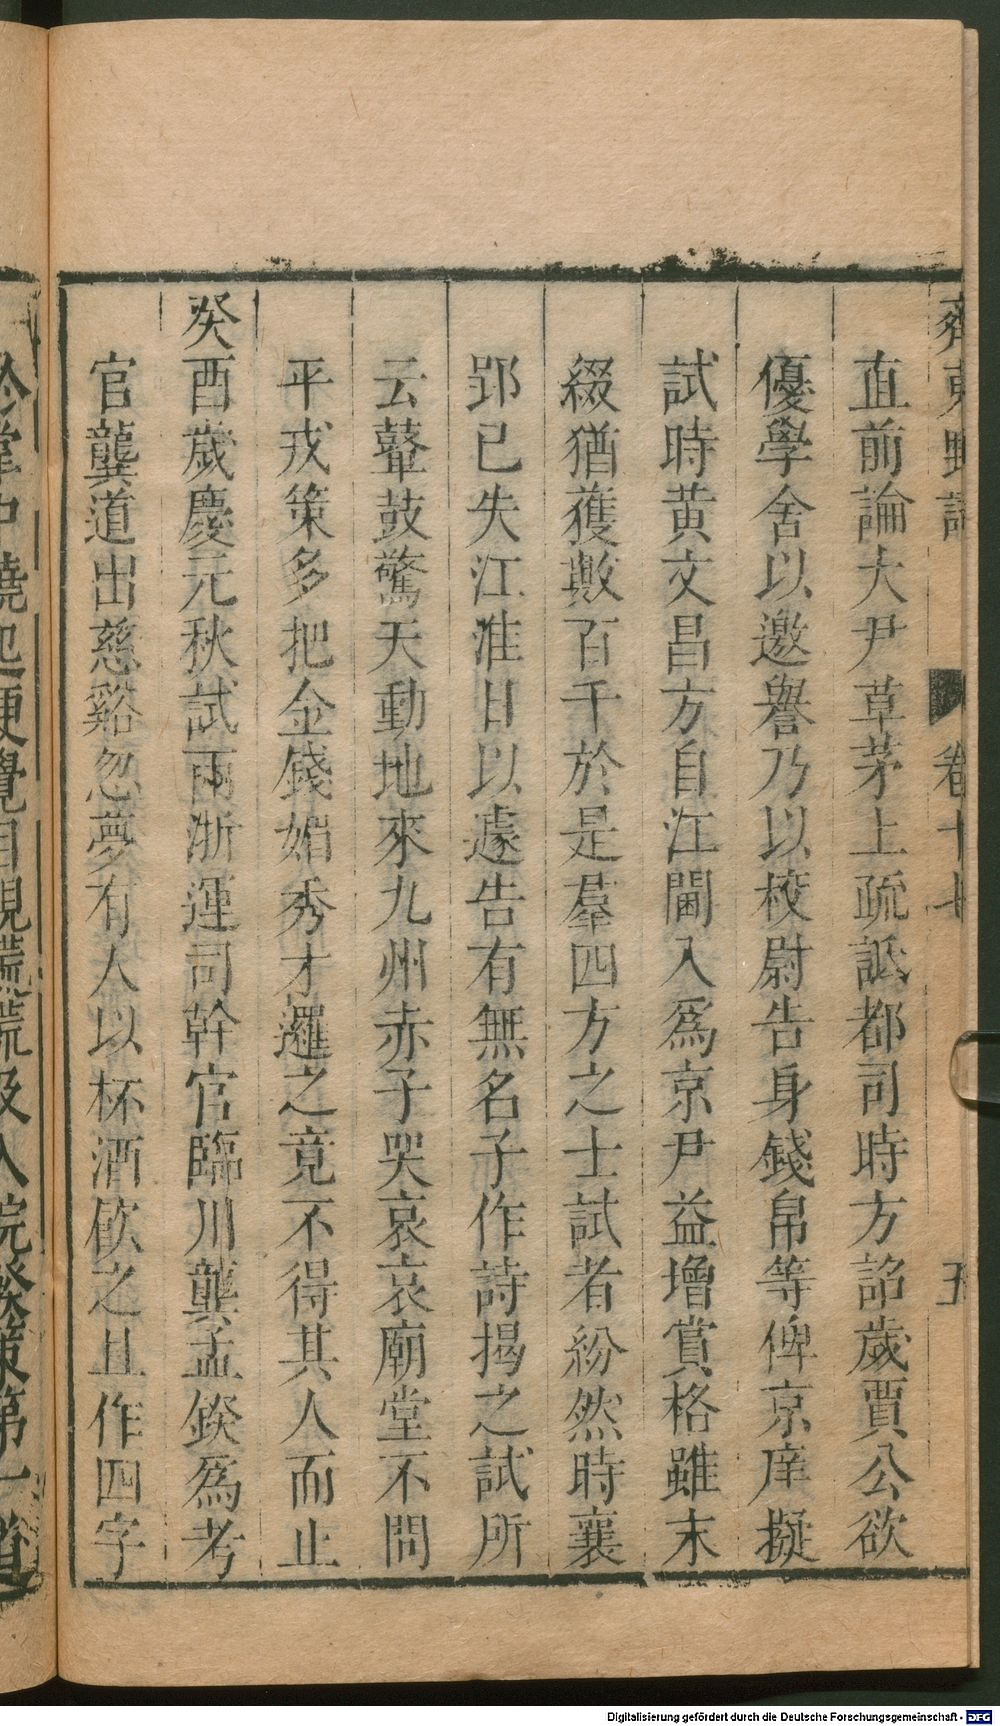 齊東野語 卷十七 五
直前論大尹草茅上疏詆都司時方諂歲賈公欲
優學舍以邀譽乃以校尉告身錢帛等俾京庠擬
試時黄文昌方自江閫入爲京尹益增賞格雖末
綴猶獲數百千於是羣四方之士試者紛然時襄
郢已失江淮日以遽告有無名子作詩揭之試所
云鼙鼓驚天動地來九州赤子哭哀哀廟堂不問
平戎策多把金錢媚秀才邏之竟不得其人而止
癸酉歲慶元秋試兩浙運司幹官臨川龔孟鍨爲考
官龔道出慈谿忽夢有人以杯酒飮之且作四字
掌中曉起便覺目視䀮䀮及入院發策第一道
Digitalisierung gefördert durch die Deutsche Forschungsgemeinschaft - DFG